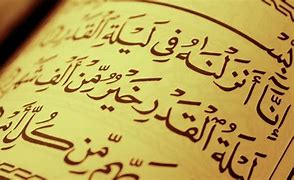 بِسْ
إِنَّا أَنزَلْنَٰهُ فِى لَيْلَةِ ٱلْقَدْرِ
لَيْلَةُ ٱلْقَدْرِ خَيْرٌ مِّنْ أَلْفِ شَهْرٍ
رَبِّهِم مِّن كُلِّ